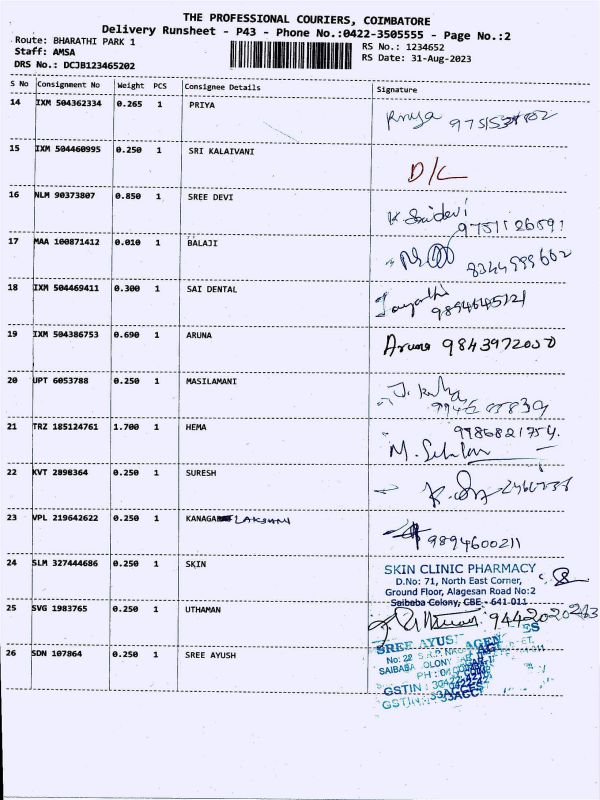 THE PROFESSIONAL COURIERS, COIMBATORE
Delivery Runsheet - P43 - Phone No.:0422-3505555 - Page No.:2
Route: BHARATHI PARK 1
RS No.: 1234652
Staff: AMSA
RS Date: 31-Aug-2023
DRS No.: DCJB123465202
S No Consignment No Weight PCS Consignee Details Signature
14 IXM 504362334 0.265 1 PRIYA Priya
15 IXM 504460995 0.250 1 SRI KALAIVANI D/L
16 NLM 90373807 0.850 1 SREE DEVI K. Saidevi
9751126591
17 MAA 100871412 0.010 1 BALAJI 8344999662
18 IXM 504469411 0.300 1 SAI DENTAL Jayanthi
9894645121
19 IXM 504386753 0.690 1 ARUNA Aruna 9843972050
20 UPT 6053788 0.250 1 MASILAMANI
21 TRZ 185124761 1.700 1 HEMA 9786821754.
22 KVT 2898364 0.250 1 SURESH
23 VPL 219642622 0.250 1 KANAGA LAKSHMI 9894600211
24 SLM 327444686 0.250 1 SKIN SKIN CLINIC PHARMACY
D.No: 71, North East Corner,
Ground Floor, Alagesan Road No:2
Saibaba Colony, CBE - 641 011
25 SVG 1983765 0.250 1 UTHAMAN
26 SDN 107864 0.250 1 SREE AYUSH SREE AYUSH AGEN ES
No: 22
SAIBABA COLONY
PH :
GSTIN :
GSTIN :